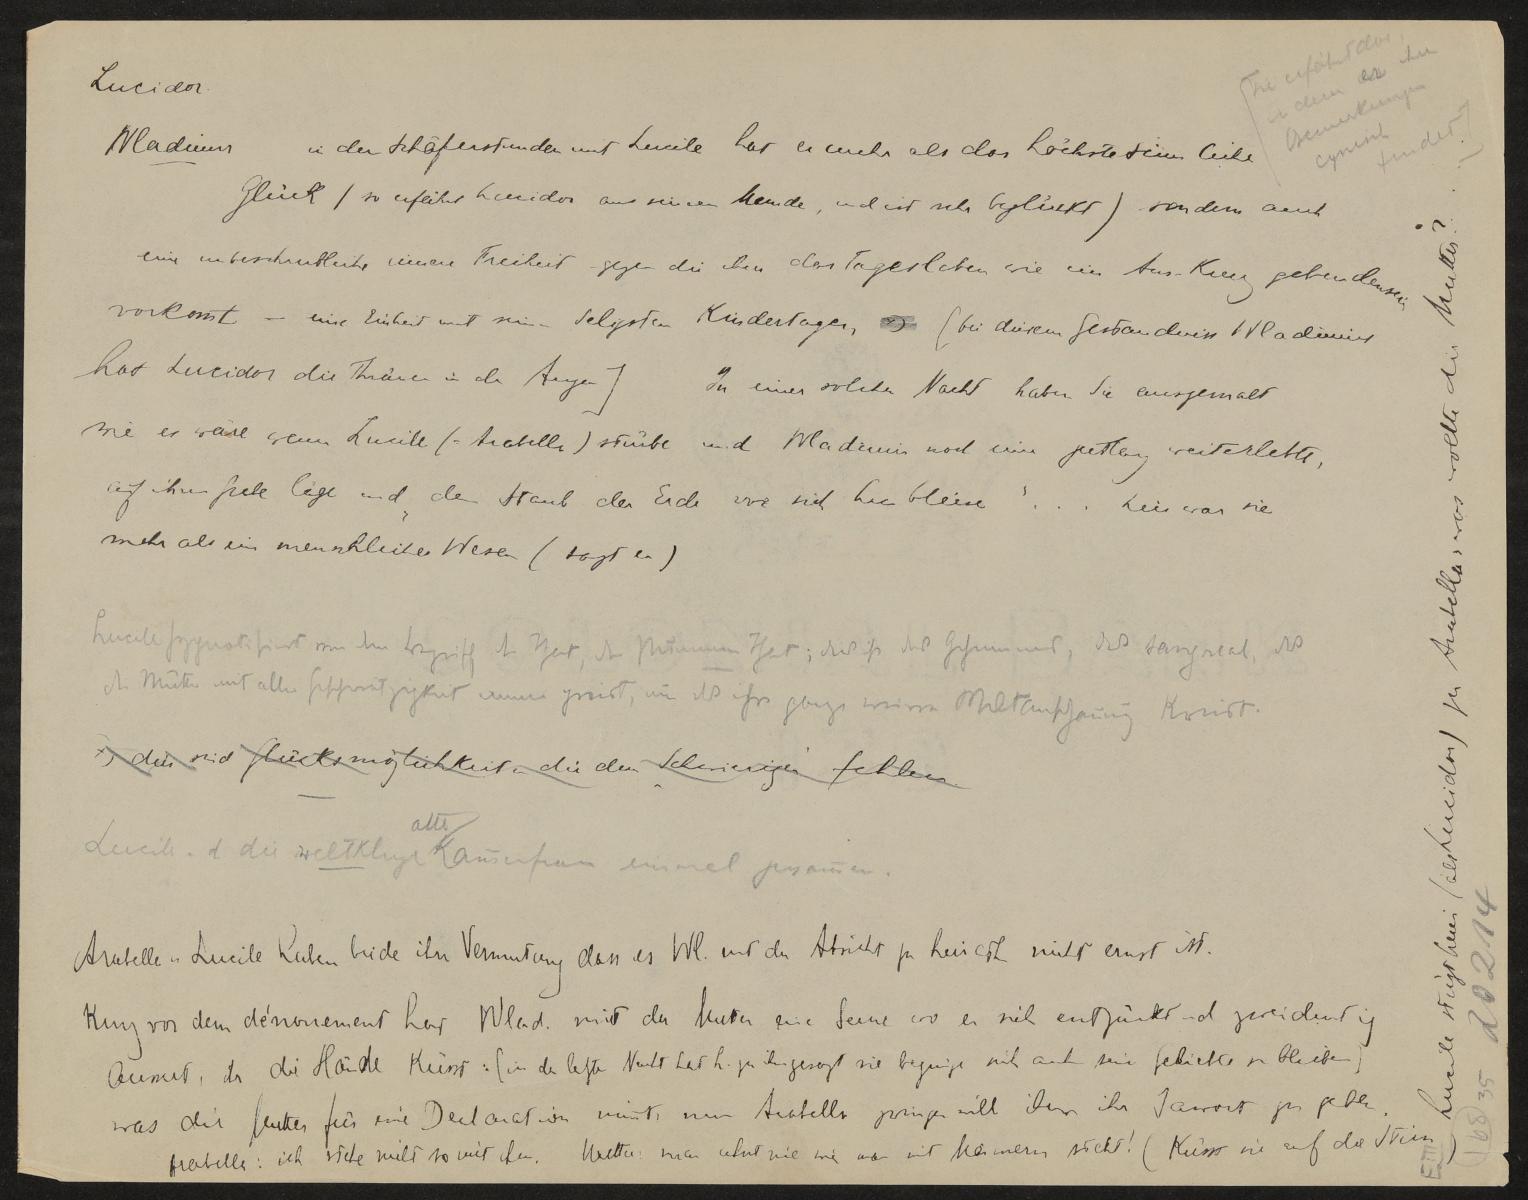 Lucidor.
Wladimir in den Schäferstunden mit Lucile hat er mehr als das höchste sinnliche
Glück (so erfährt Lucidor aus seinem Munde, und ist sehr beglückt) sondern auch
eine unbeschreibliche innere Freiheit gegen die ihm das Tagesleben wie ein gebundensein
vorkommt – eine Einheit mit seinen seligsten Kindertagen, (bei diesem Geständniss Wladimirs
hat Lucidor die Thränen in den Augen] In einer solchen Nacht haben Sie ausgemalt
wie es wäre wenn Lucile (= Arabella) stürbe und Wladimir noch eine zeitlang weiterlebte,
auf ihrem Grabe läge und den Staub der Erde vor sich hin bliese . . . hier war sie
mehr als ein menschliches Wesen (sagt er)
Lucile hypnotisiert von dem Begriff der That, der That; dies ist das Geheimniss, das Sangreal, das
die Mutter mit aller immer preist, um das ihre ganze Weltanschauung kreist.
die sind Glücksmöglichkeiten die dem Schwierigen fehlen
alte
Lucile und die weltkluge Kammerfrau einmal zusammen.
Arabella u Lucile haben beide ihre Vermutung dass es Wl. mit der Absicht zu heirathen nicht ernst ist.
Kurz vor dem dénouement hat Wlad. mit der Mutter eine Scene wo er sich entzückt und zweideutig
äussert, ihr die Hände küsst: (in der letzten Nacht hat L. zu ihm gesagt sie begnüge sich auch seine Geliebte zu bleiben)
was die Mutter für eine Declaration nimmt, nun Arabella zwingen will ihm ihr Jawort zu geben.
Arabella: ich stehe nicht so mit ihm. Mutter: man ahnt nie wie man mit Männern steht! (Küsst sie auf die Stirn)
Lucile stürzt herein (als Lucidor) zu Arabella: was wollte die Mutter?
Sie erfährt das,
indem er ihre
Bemerkungen
cynisch
findet.
EIII
(168) 35
20214